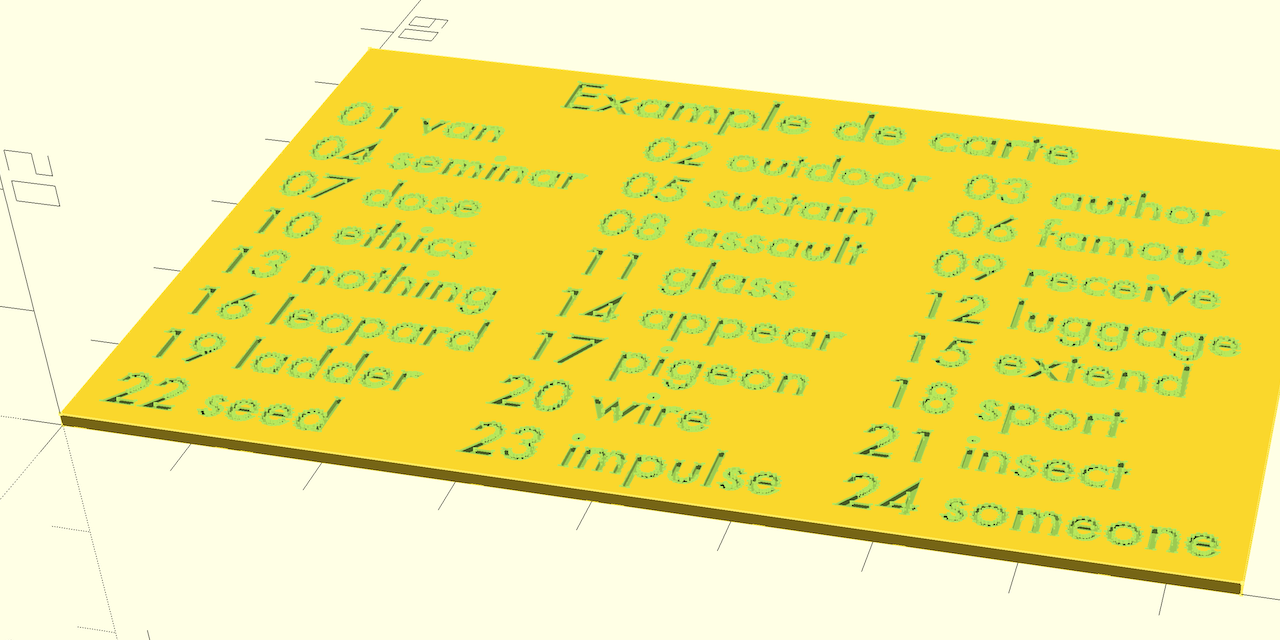 Example de carte
01 van 02 outdoor 03 author
04 seminar 05 sustain 06 famous
07 dose 08 assault 09 receive
10 ethics 11 glass 12 luggage
13 nothing 14 appear 15 extend
16 leopard 17 pigeon 18 sport
19 ladder 20 wire 21 insect
22 seed 23 impulse 24 someone